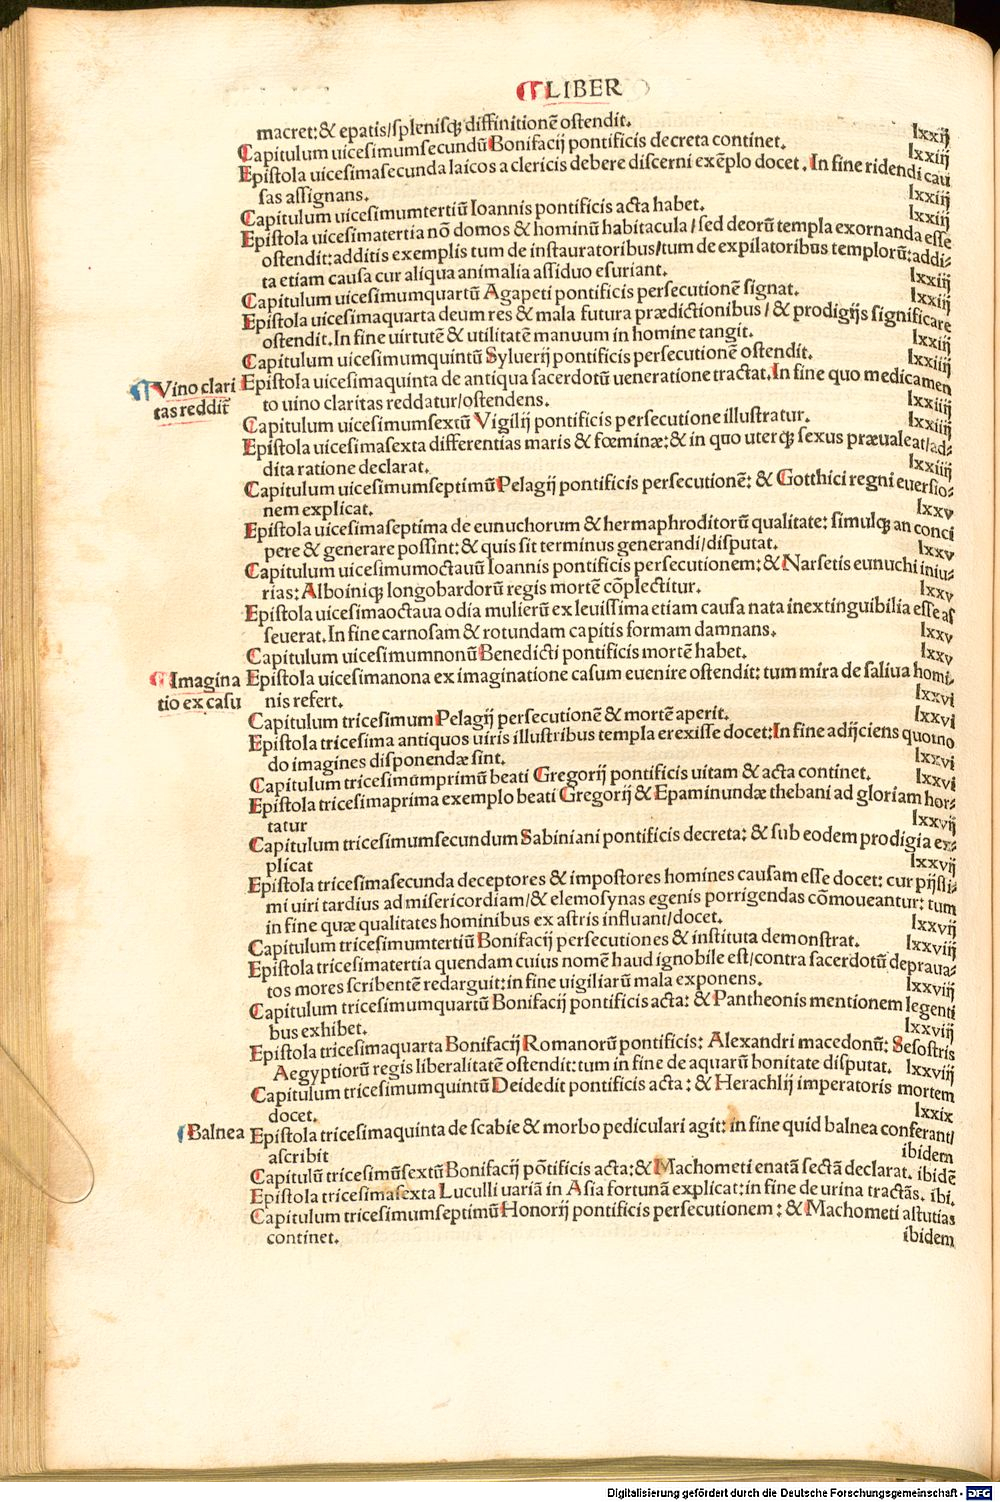 LIBER
macret:& epatis/splenisq; diffinitionē ostendit. lxxij
Capitulum uicesimumsecundū Bonifacij pontificis decreta continet. lxxiij
Epistola uicesimasecunda laicos a clericis debere discerni exēplo docet. In fine ridendi cau
sas assignans. lxxiij
Capitulum uicesimumtertiū Ioannis pontificis acta habet. lxxiij
Epistola uicesimatertia nō domos & hominū habitacula/sed deorū templa exornanda esse
ostendit:additis exemplis tum de instauratoribus/tum de expilatoribus templorū:addi-
ta etiam causa cur aliqua animalia assiduo esuriant. lxxiij
Capitulum uicesimumquartū Agapeti pontificis persecutionē signat. lxxiij
Epistola uicesimaquarta deum res & mala futura prædictionibus/& prodigijs significare
ostendit.In fine uirtutē & utilitatē manuum in homine tangit. lxxiij
Capitulum uicesimumquintū Syluerij pontificis persecutionē ostendit. lxxiiij
Vino clari
tas reddit̄
Epistola uicesimaquinta de antiqua sacerdotū ueneratione tractat.In fine quo medicamen
to uino claritas reddatur/ostendens. lxxiiij
Capitulum uicesimumsextū Vigilij pontificis persecutione illustratur. lxxiiij
Epistola uicesimasexta differentias maris & fœminæ:& in quo uterq; sexus præualeat/ad-
dita ratione declarat. lxxiiij
Capitulum uicesimumseptimū Pelagij pontificis persecutionē: & Gotthici regni euersio-
nem explicat. lxxv
Epistola uicesimaseptima de eunuchorum & hermaphroditorū qualitate: simulq; an conci
pere & generare possint:& quis sit terminus generandi/disputat. lxxv
Capitulum uicesimumoctauū Ioannis pontificis persecutionem:& Narsetis eunuchi iniu-
rias:Alboiniq; longobardorū regis mortē cōplectitur. lxxv
Epistola uicesimaoctaua odia mulierū ex leuissima etiam causa nata inextinguibilia esse as
seuerat.In fine carnosam & rotundam capitis formam damnans. lxxv
Capitulum uicesimumnonū Benedicti pontificis mortē habet. lxxv
Imagina
tio ex casu
Epistola uicesimanona ex imaginatione casum euenire ostendit: tum mira de saliua homi-
nis refert. lxxvi
Capitulum tricesimum Pelagij persecutionē & mortē aperit. lxxvi
Epistola tricesima antiquos uiris illustribus templa erexisse docet:In fine adijciens quomo
do imagines disponendæ sint. lxxvi
Capitulum tricesimumprimū beati Gregorij pontificis uitam & acta continet. lxxvi
Epistola tricesimaprima exemplo beati Gregorij & Epaminundæ thebani ad gloriam hor-
tatur lxxvij
Capitulum tricesimumsecundum Sabiniani pontificis decreta: & sub eodem prodigia ex-
plicat lxxvij
Epistola tricesimasecunda deceptores & impostores homines causam esse docet: cur pijssi-
mi uiri tardius ad misericordiam/& elemosynas egenis porrigendas cōmoueantur: tum
in fine quæ qualitates hominibus ex astris influant/docet. lxxvij
Capitulum tricesimumtertiū Bonifacij persecutiones & instituta demonstrat. lxxviij
Epistola tricesimatertia quendam cuius nomē haud ignobile est/contra sacerdotū depraua-
tos mores scribentē redarguit:in fine uigiliarū mala exponens. lxxviij
Capitulum tricesimumquartū Bonifacij pontificis acta: & Pantheonis mentionem legenti
bus exhibet. lxxviij
Epistola tricesimaquarta Bonifacij Romanorū pontificis: Alexandri macedonū: Sesostris
Aegyptiorū regis liberalitatē ostendit:tum in fine de aquarū bonitate disputat. lxxviij
Capitulum tricesimumquintū Deidedit pontificis acta: & Herachlij imperatoris mortem
docet. lxxix
Balnea
Epistola tricesimaquinta de scabie & morbo pediculari agit: in fine quid balnea conferant/
ascribit ibidem
Capitulū tricesimūsextū Bonifacij pōtificis acta:& Machometi enatā sectā declarat. ibidē
Epistola tricesimasexta Luculli uariā in Asia fortunā explicat:in fine de urina tractās. ibi.
Capitulum tricesimumseptimū Honorij pontificis persecutionem: & Machometi astutias
continet. ibidem
Digitalisierung gefördert durch die Deutsche Forschungsgemeinschaft - DFG